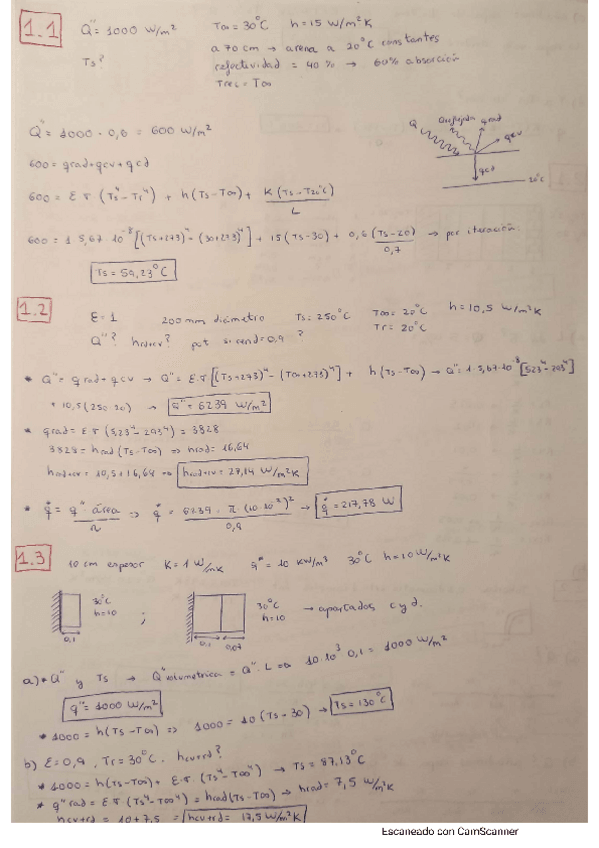 1.1 Q̇" = 1000 W/m² T∞ = 30°C h = 15 W/m²K
Ts? a 70 cm → arena a 20°C constantes
reflectividad = 40% → 60% absorción
Tres = T∞
Q̇" = 1000 · 0,6 = 600 W/m²
Q Qreflejada qrad qcv
qcd
20°C
600 = qrad + qcv + qcd
600 = ε σ (Ts⁴ - Tr⁴) + h (Ts - T∞) + K (Ts - T20°C) / L
600 = 1 · 5,67 · 10⁻⁸ [(Ts+273)⁴ - (30+273)⁴] + 15 (Ts-30) + 0,6 (Ts-20) / 0,7 → por iteración.
Ts = 59,23°C
1.2 ε = 1 200 mm diámetro Ts = 250°C T∞ = 20°C h = 10,5 W/m²K
Tr = 20°C
Q"? hrd+cv? pot si rend = 0,9 ?
* Q" = qrad + qcv → Q" = ε σ [(Ts+273)⁴ - (T∞+273)⁴] + h (Ts - T∞) → Q" = 1 · 5,67 · 10⁻⁸ [523⁴ - 293⁴]
+ 10,5 (250 - 20) → Q" = 6239 W/m²
* qrad = ε σ (523⁴ - 293⁴) = 3828
3828 = hrad (Ts - T∞) ⇒ hrad = 16,64
hrd+cv = 10,5 + 16,64 ⇒ hrd+cv = 27,14 W/m²K
* q̇ = q" · área / n ⇒ q̇ = 6239 · π (10·10⁻²)² / 0,9 → q̇ = 217,78 W
1.3 10 cm espesor K = 1 W/mK q''' = 10 KW/m³ 30°C h = 10 W/m²K
30°C h=10 ; 30°C h=10 → apartados c y d.
0,1 0,1
a) * Q" y Ts → Q" volumetrica = Q" · L ⇒ 10 · 10³ · 0,1 = 1000 W/m²
q" = 1000 W/m²
* 1000 = h (Ts - T∞) ⇒ 1000 = 10 (Ts - 30) → Ts = 130°C
b) ε = 0,9 , Tr = 30°C . hcv+rd?
* 1000 = h (Ts - T∞) + ε σ (Ts⁴ - T∞⁴) → Ts = 87,13°C
* q"rad = ε σ (Ts⁴ - T∞⁴) = hrad (Ts - T∞) → hrad = 7,5 W/m²K
hcv+rd = 10 + 7,5 = hcv+rd = 17,5 W/m²K
Escaneado con CamScanner